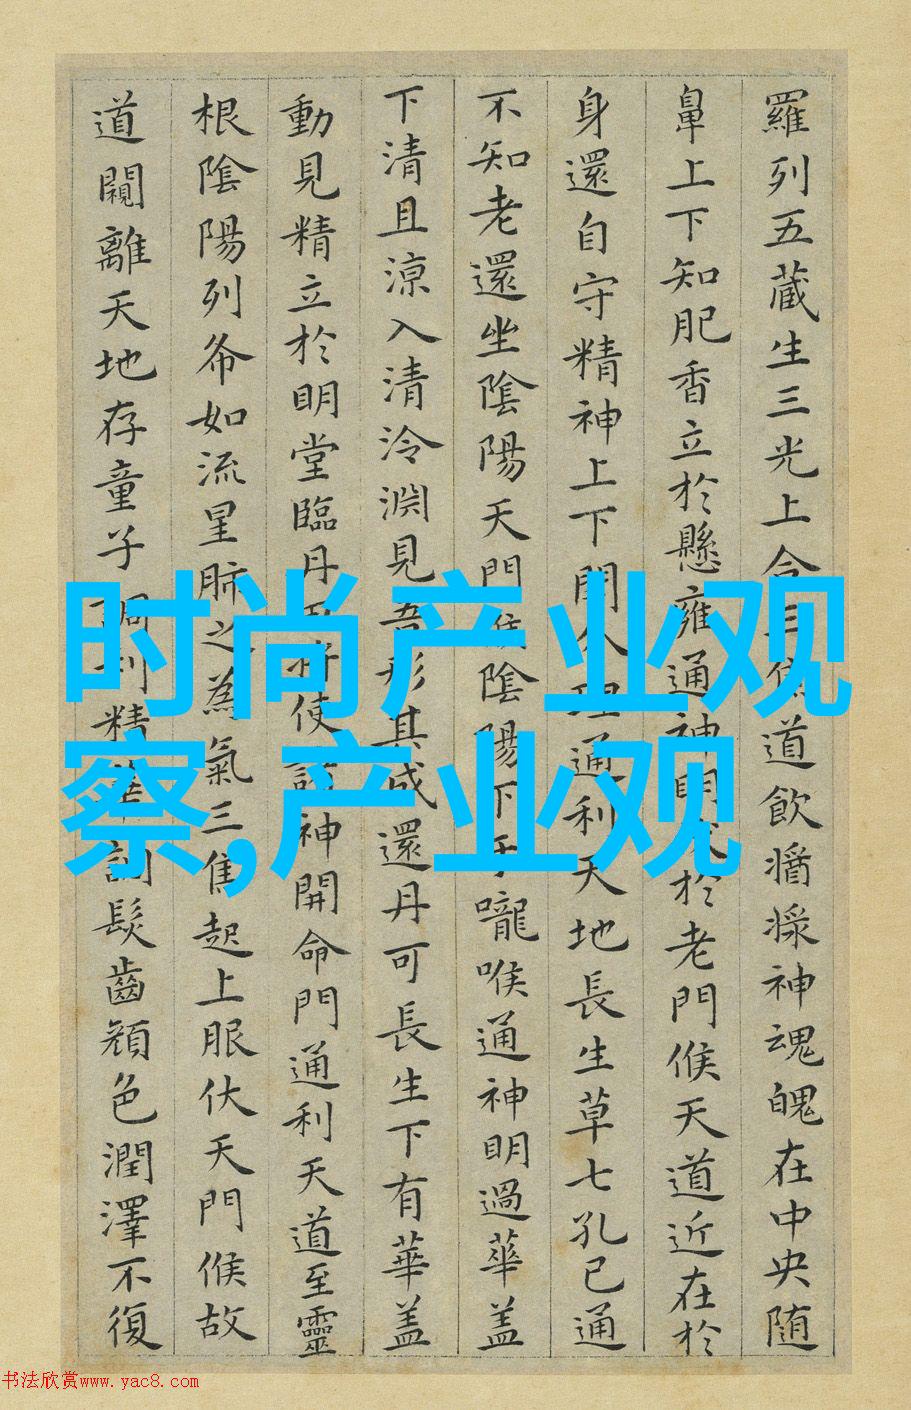 羅列五藏生三光上合三焦道飲醬漿神魂魄在中央随
鼻上下知肥香立於懸雍通神明伏於老門候天道近在於
身還自守精神上下開分理通利天地長生草七孔已通
不知老還坐陰陽天門候陰陽下于嚨喉通神明過華盖
下清且涼入清泠淵見吾形其成還丹可長生下有華盖
動見精立於明堂臨丹田将使諸神開命門通利天道至靈
根陰陽列布如流星肺之為氣三焦起上服伏天門候故
道闚離天地存童子調利精華調髮齒顔色潤澤不復
时尚产业观
察,产业观
书法欣赏www.yac8.com